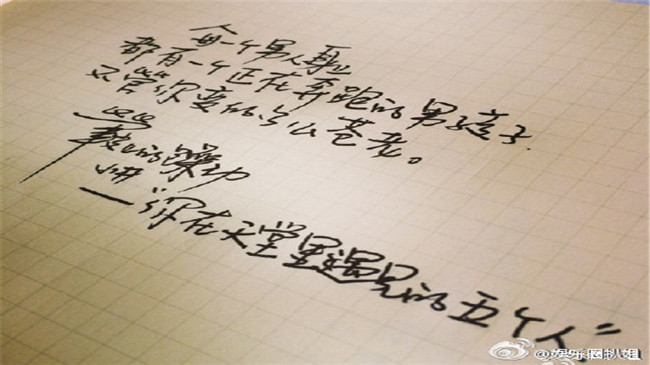 每一个男人身上
都有一个正在奔跑的男孩子
不管你变的多么苍老。
的躁动
—“你在天堂里遇见的五个人”
@娱乐网扒姐